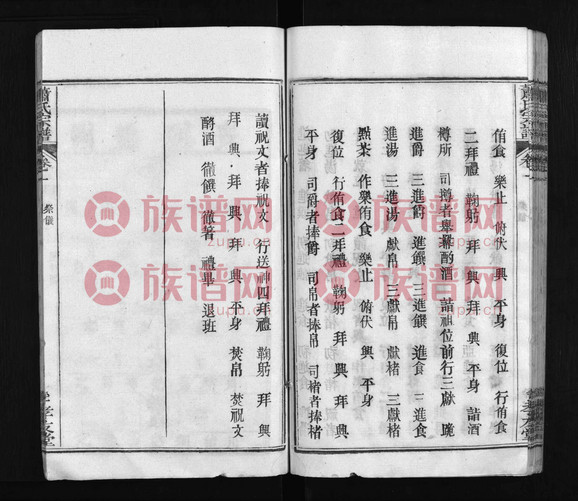 侑食 樂止 俯伏 興 平身 復位 行侑食
二拜禮 鞠躬 拜 興 拜 興 平身 詣酒
樽所 司樽者舉羃酌酒 詣祖位前行三獻 跪
進爵 三進爵 進饌 三進饌 進食 三進食
進湯 三進湯 獻帛 三獻帛 獻楮 三獻楮
點茶 作樂侑食 樂止 俯伏 興 平身
復位 行侑食二拜禮 鞠躬 拜 興 拜 興
平身 司爵者捧爵 司帛者捧帛 司楮者捧楮
讀祝文者捧祝文 行送神四拜禮 鞠躬 拜 興
拜 興 拜 興 拜 興 平身 焚帛 焚祝文
酹酒 徹饌 徹箸 禮畢 退班
蕭氏宗譜 卷一 祭儀
孝友堂
族谱网
zupu.cn
族谱网
zupu.cn
族谱网
zupu.cn
族谱网
zupu.cn